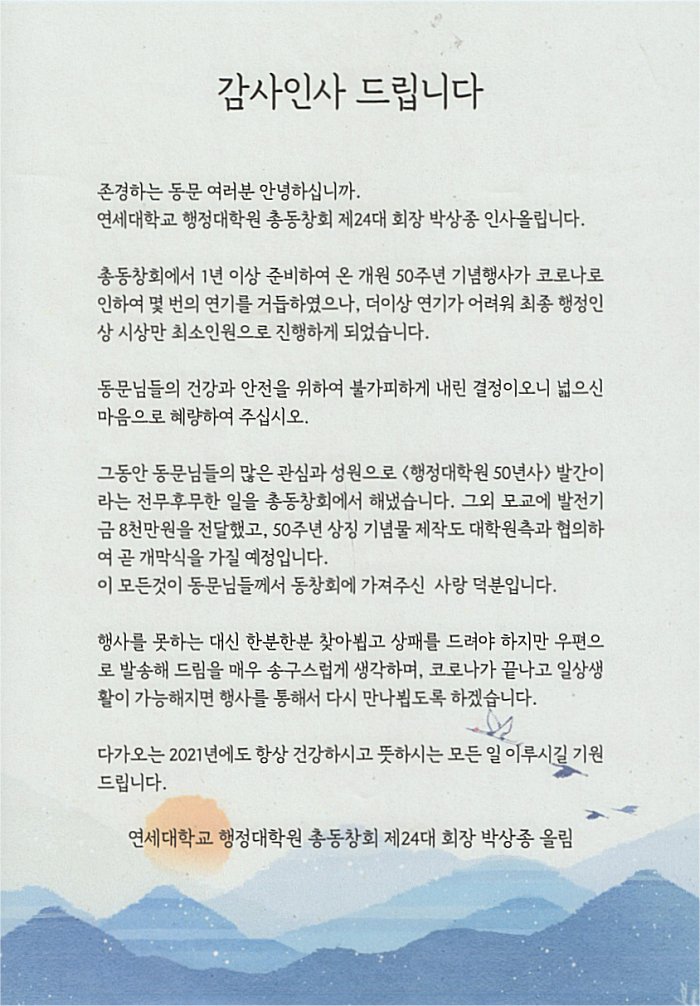 감사인사 드립니다
존경하는 동문 여러분 안녕하십니까.
연세대학교 행정대학원 총동창회 제24대 회장 박상종 인사올립니다.
총동창회에서 1년 이상 준비하여 온 개원 50주년 기념행사가 코로나로
인하여 몇 번의 연기를 거듭하였으나, 더이상 연기가 어려워 최종 행정인
상 시상만 최소인원으로 진행하게 되었습니다.
동문님들의 건강과 안전을 위하여 불가피하게 내린 결정이오니 넓으신
마음으로 혜량하여 주십시오.
그동안 동문님들의 많은 관심과 성원으로 <행정대학원 50년사> 발간이
라는 전무후무한 일을 총동창회에서 해냈습니다. 그외 모교에 발전기
금 8천만원을 전달했고, 50주년 상징 기념물 제작도 대학원측과 협의하
여 곧 개막식을 가질 예정입니다.
이 모든것이 동문님들께서 동창회에 가져주신 사랑 덕분입니다.
행사를 못하는 대신 한분한분 찾아뵙고 상패를 드려야 하지만 우편으
로 발송해 드림을 매우 송구스럽게 생각하며, 코로나가 끝나고 일상생
활이 가능해지면 행사를 통해서 다시 만나뵙도록 하겠습니다.
다가오는 2021년에도 항상 건강하시고 뜻하시는 모든 일 이루시길 기원
드립니다.
연세대학교 행정대학원 총동창회 제24대 회장 박상종 올림